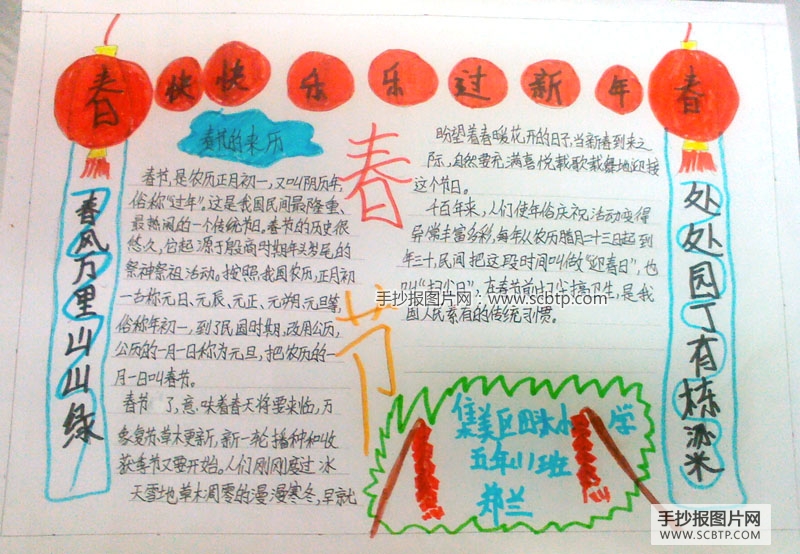 快快乐乐过新年
春
春
春风万里山山绿
春节的来历
春节,是农历正月初一,又叫阴历年,
俗称“过年”。这是我国民间最隆重、
最热闹的一个传统节日。春节的历史很
悠久,它起源于殷商时期年头岁尾的
祭神祭祖活动。按照我国农历,正月初
一古称元日、元辰、元正、元朔、元旦等,
俗称年初一,到了民国时期,改用公历,
公历的一月一日称为元旦,把农历的一
月一日叫春节。
春节 了,意味着春天将要来临,万
象复苏草木更新,新一轮播种和收
获季节又要开始。人们刚刚度过冰
天雪地草木凋零的漫漫寒冬,早就
春节
盼望着春暖花开的日子,当新春到来之
际,自然要充满喜悦载歌载舞地迎接
这个节日。
千百年来,人们使年俗庆祝活动变得
异常丰富多彩,每年从农历腊月二十三日起到
年三十,民间把这段时间叫做“迎春日”,也
叫“扫尘日”,在春节前扫尘搞卫生,是我
国人民素有的传统习惯。
处处园丁有栋
米
集美区 小学
五年 班
郑兰
手抄报图片网:www.scbtp.com
手抄报图片网
WWW.SCBTP.COM